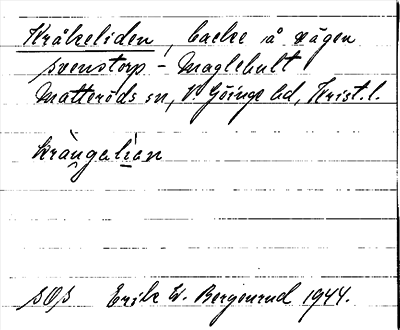 Kråkeliden, backe å vägen
Svenstorp - Maglehult
Matteröds sn, V. Göinge hd, Krist. l.
krångalian
SOS Erik W. Bergenrud 1944.